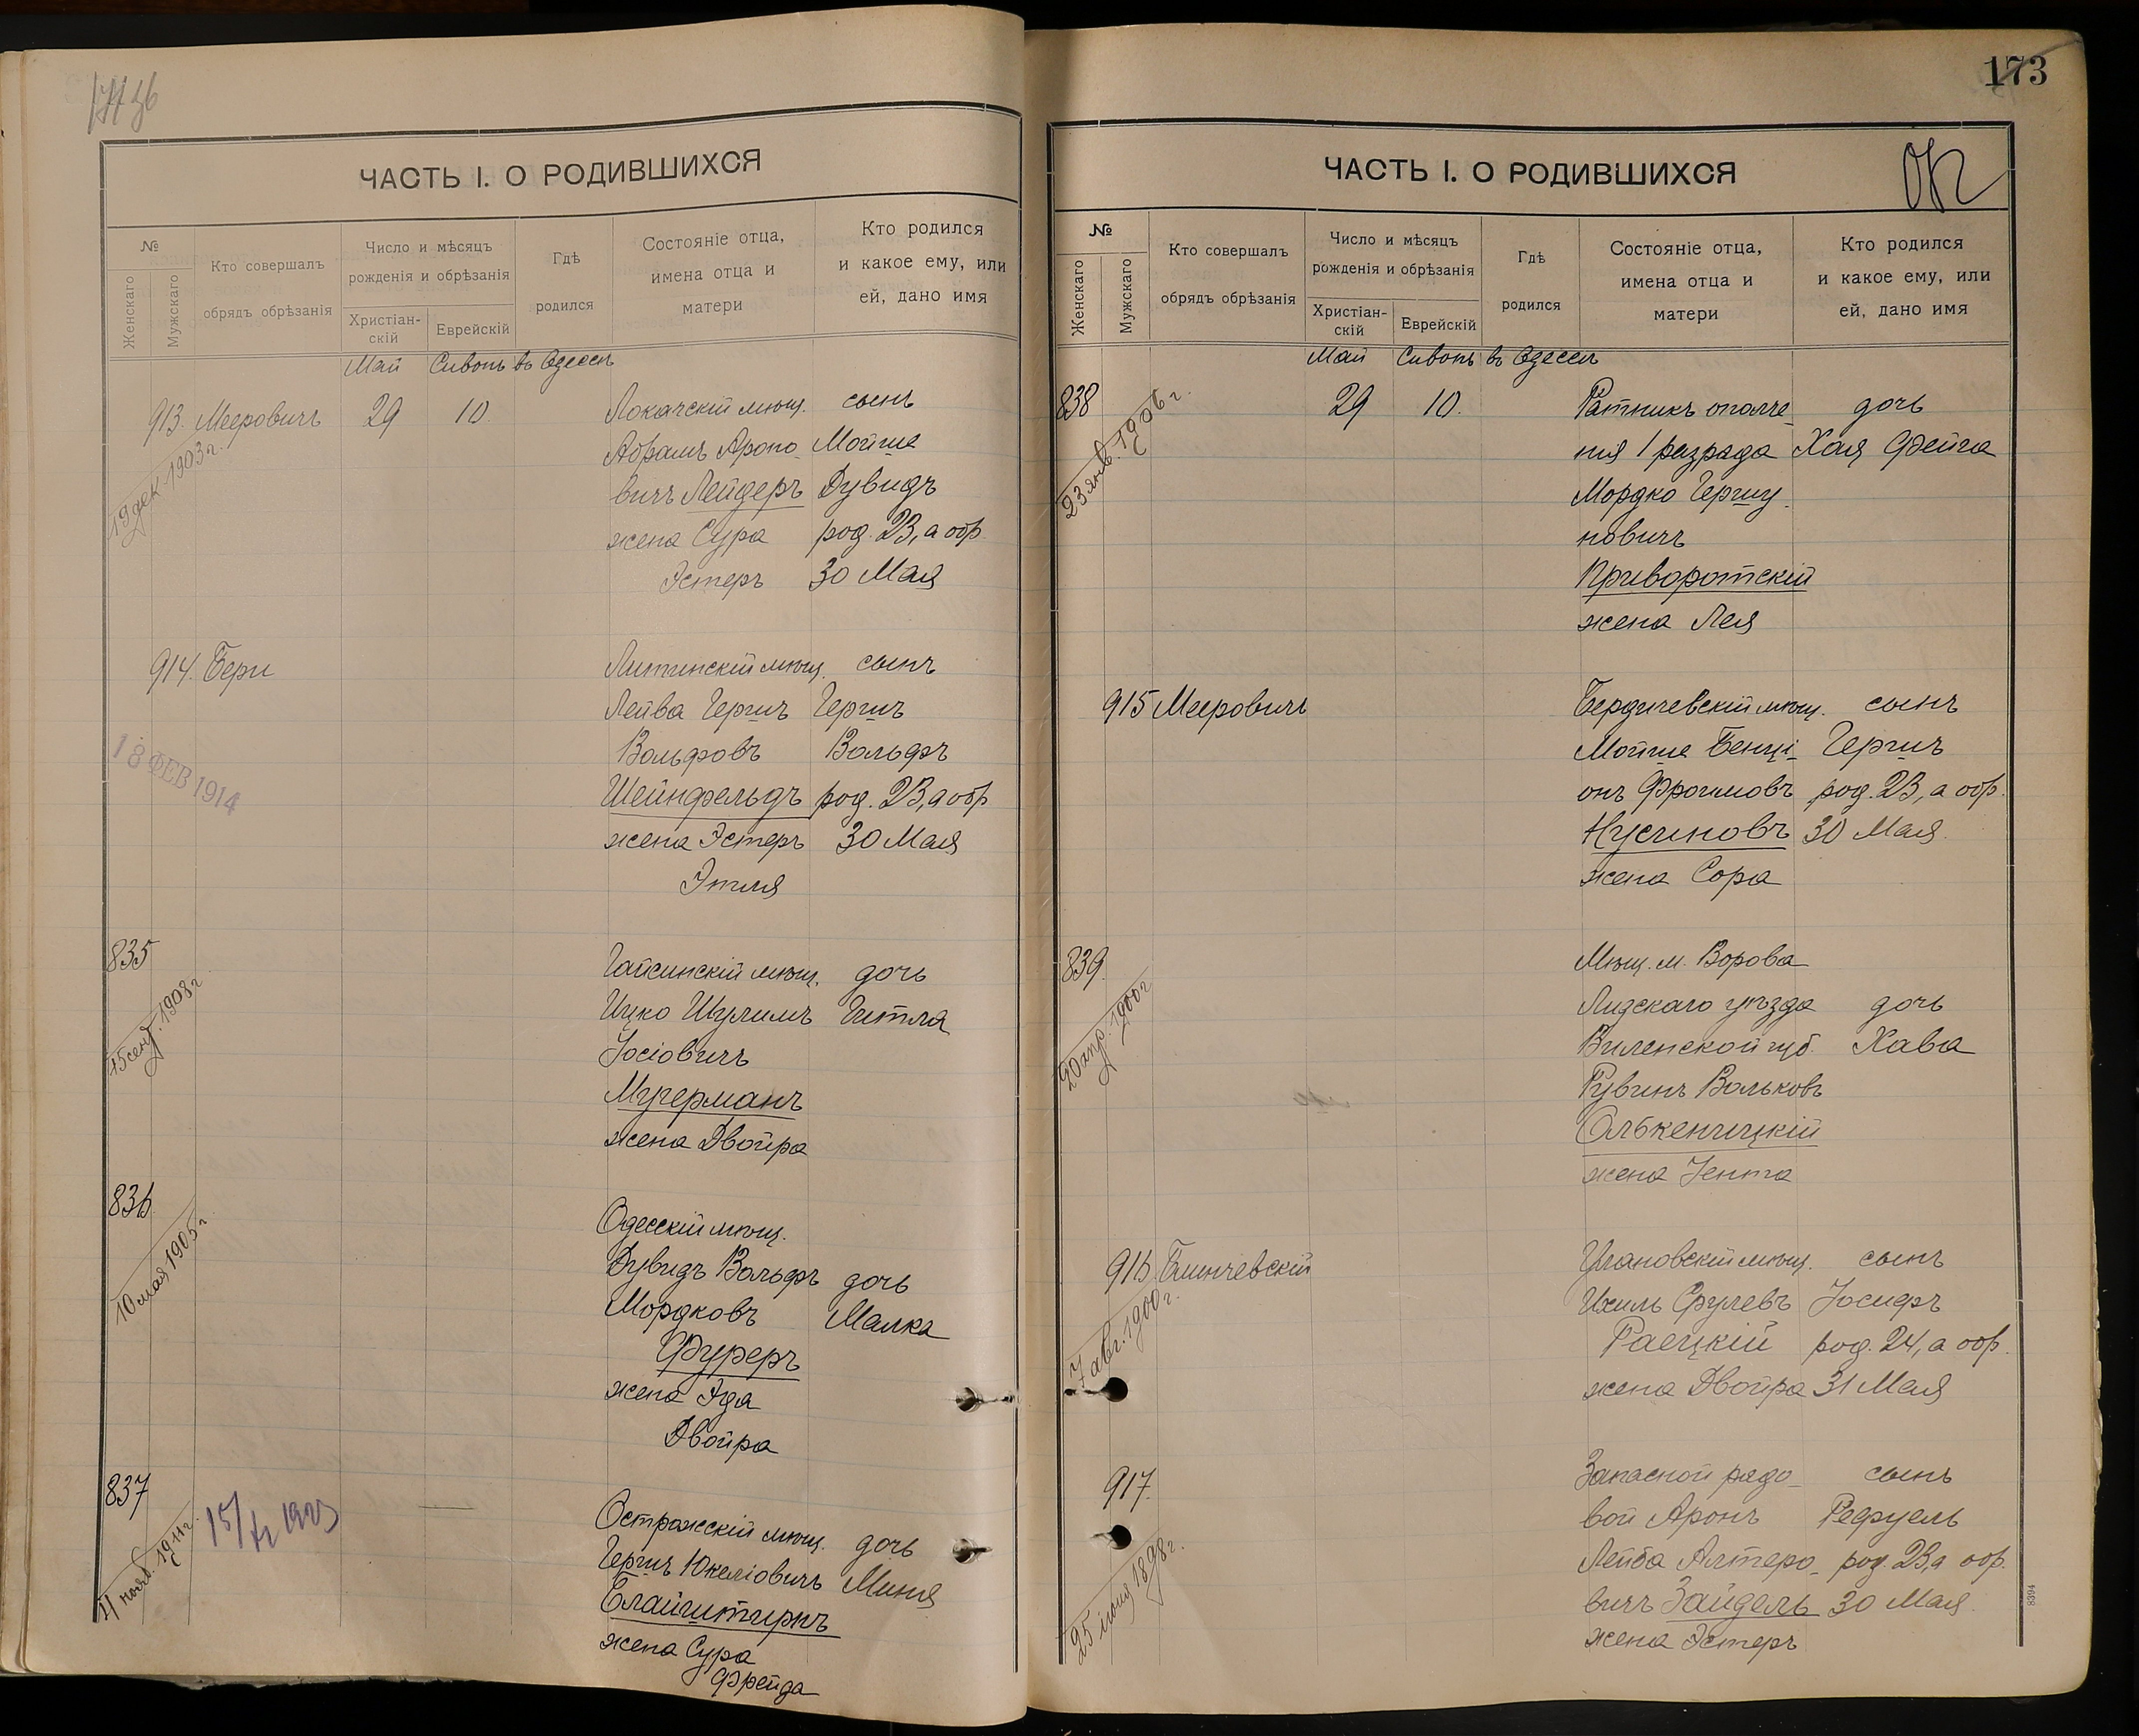 ЧАСТЬ I. О РОДИВШИХСЯ
№
Женскаго
Мужскаго
Кто совершалъ
обрядъ обрѣзанія
Число и мѣсяцъ
рожденія и обрѣзанія
Христіан-
скій
Еврейскій
Гдѣ
родился
Состояніе отца,
имена отца и
матери
Кто родился
и какое ему, или
ей, дано имя
Май Сивонъ въ Одессѣ
913. Мееровичъ 29 10 Локачскій мѣщ. сынъ
19 дек. 1903 г.
Абрамъ Ароно- Мойше
вичъ Лейдеръ Дувидъ
жена Сура род. 23, а обр.
Эстеръ 30 Мая
914. Бери Литинскій мѣщ. сынъ
Лейва Гершъ Гершъ
Вольфовъ Вольфъ
18 ФЕВ 1914
Шейнфельдъ род. 23, а обр
жена Эстеръ 30 Мая
Этля
835 Гайсинскій мѣщ. дочь
15 сент. 1908 г
Ицко Шулимъ Гитля
Іосіовичъ
Мучерманъ
жена Двойра
836 Одесскій мѣщ.
10 мая 1905 г.
Дувидъ Вольфъ дочь
Мордковъ Малка
Фуреръ
жена Эда
Двойра
837 Острожскій мѣщ. дочь
11 нояб. 1911 г.
Гершъ Юкеліовичъ Миня
Блайштирнъ
жена Сура
Фрейда
173
ЧАСТЬ I. О РОДИВШИХСЯ
№
Женскаго
Мужскаго
Кто совершалъ
обрядъ обрѣзанія
Число и мѣсяцъ
рожденія и обрѣзанія
Христіан-
скій
Еврейскій
Гдѣ
родился
Состояніе отца,
имена отца и
матери
Кто родился
и какое ему, или
ей, дано имя
Май Сивонъ въ Одессѣ
838 29 10. Ратникъ ополче- дочь
23 янв. 1906 г.
нія 1 разряда Хая Фейга
Мордко Гершу-
новичъ
Приворотскій
жена Лея
915 Мееровичъ Бердичевскій мѣщ. сынъ
Мойше Бенці- Гершъ
онъ Фроимовъ род. 23, а обр.
Нусиновъ 30 Мая.
жена Сора
839. Мѣщ. м. Ворова
20 апр. 1900 г
Лидскаго уѣзда дочь
Виленской губ. Хава
Рувинъ Вольковъ
Олькеницкій
жена Іента
916 Блинчевскій Улановскій мѣщ. сынъ
7 авг. 1900 г.
Ихиль Срулевъ Іосифъ
Раецкій род. 24, а обр.
жена Двойра 31 Мая
917. Запасной рядо- сынъ
25 іюня 1898 г.
вой Аронъ Рефуель
Лейба Алтеро- род. 23, а обр.
вичъ Зайдель 30 Мая.
жена Эстеръ
8394